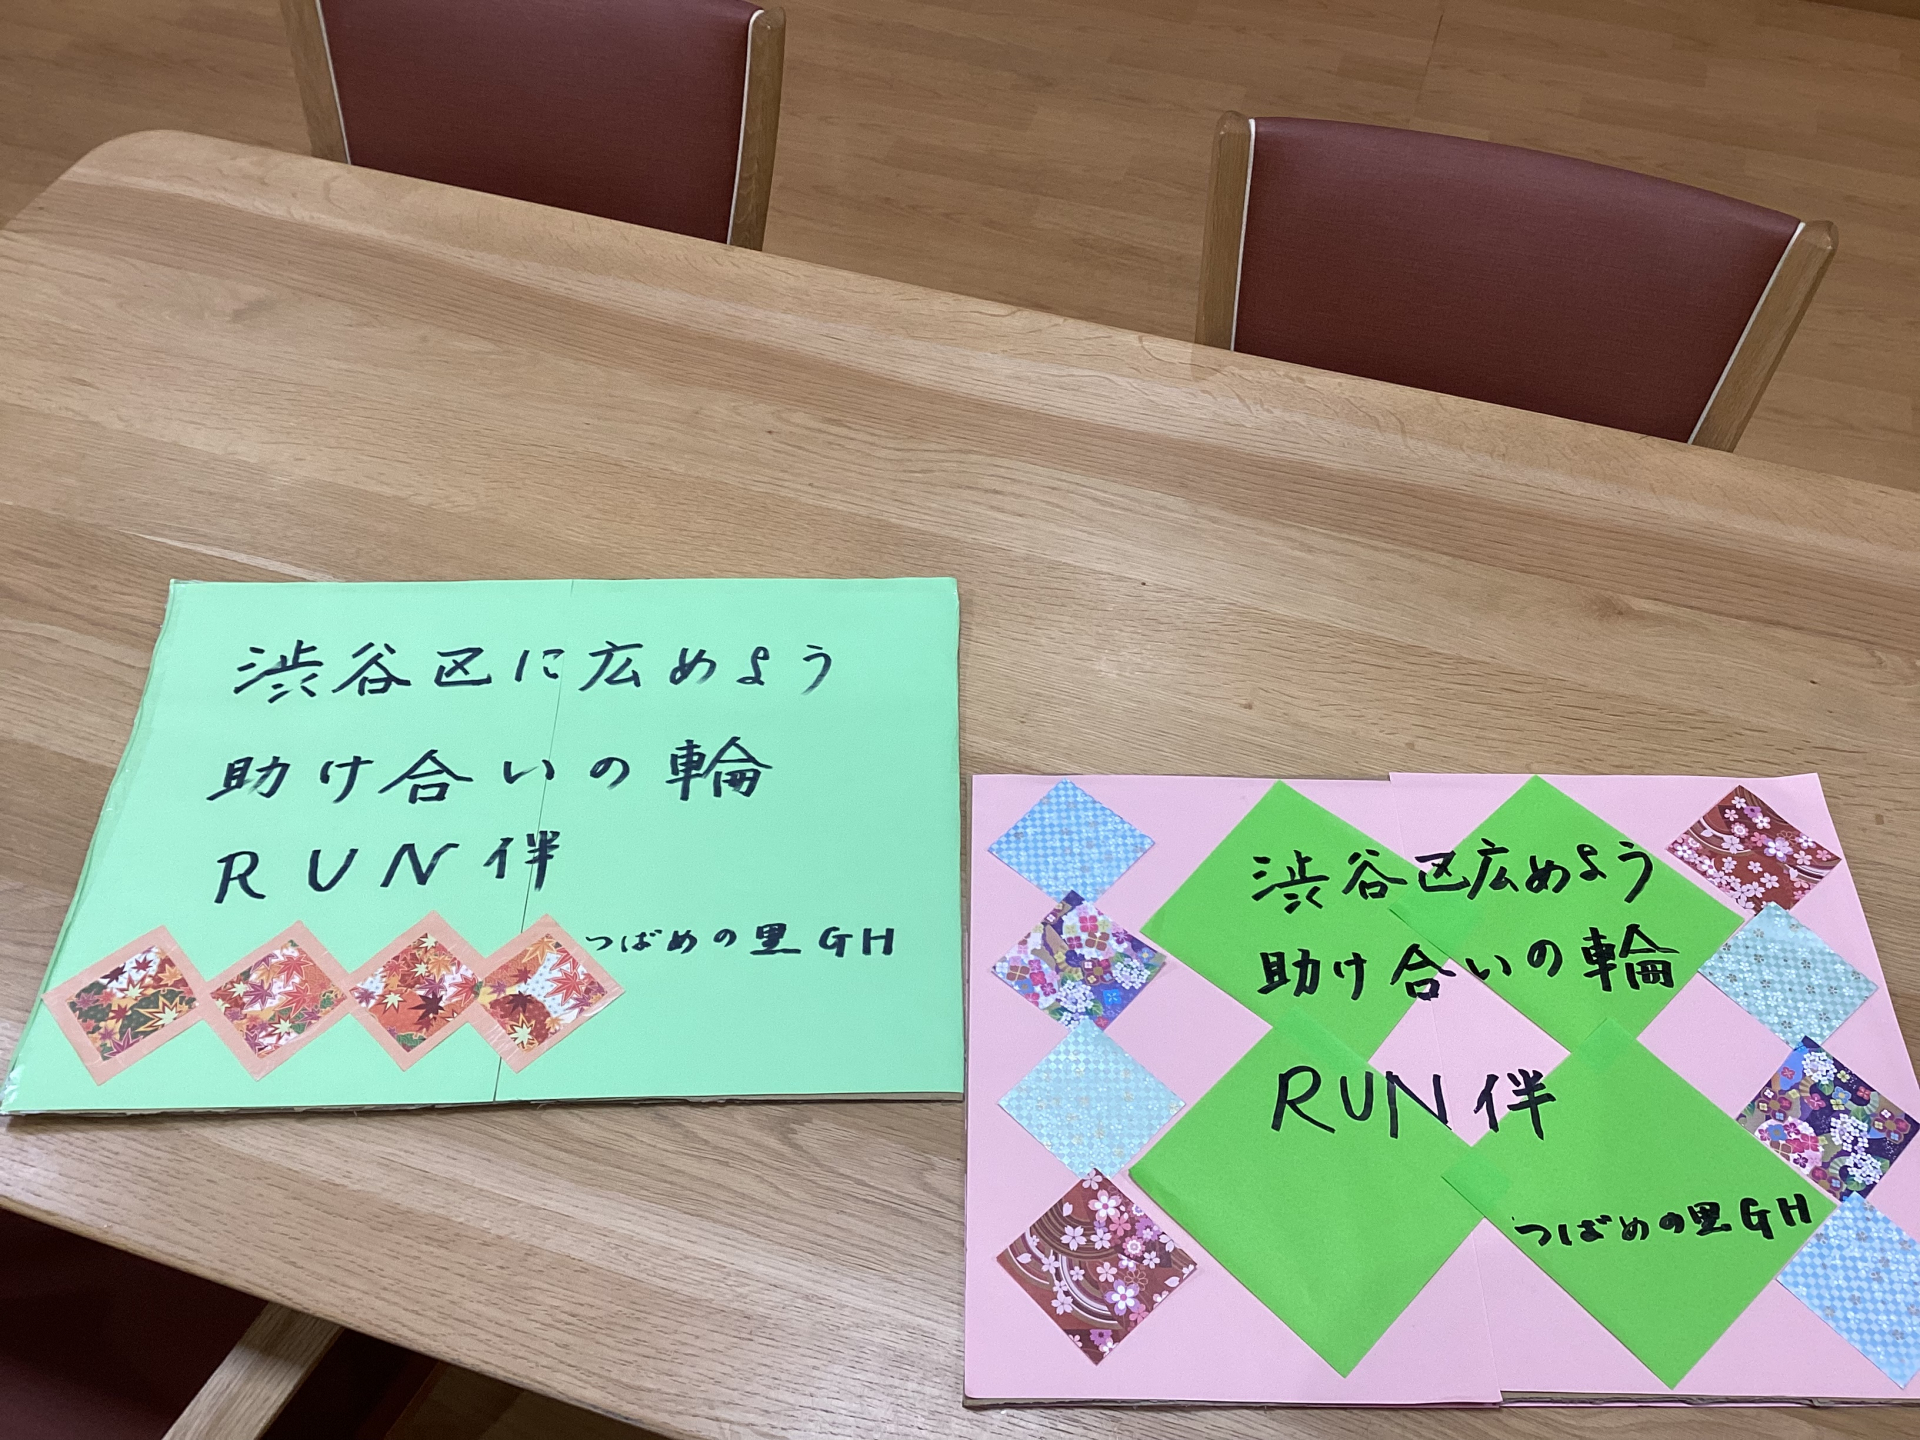 渋谷区に広めよう
助け合いの輪
RUN伴
つばめの里GH
渋谷区広めよう
助け合いの輪
RUN伴
つばめの里GH